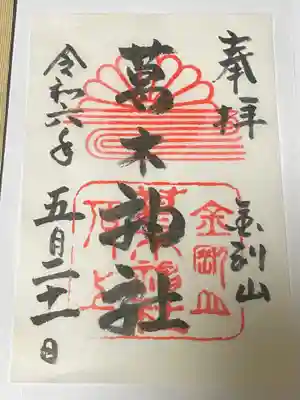 奉拝
金剛山
葛木神社
令和六年
五月二十一日
金剛山